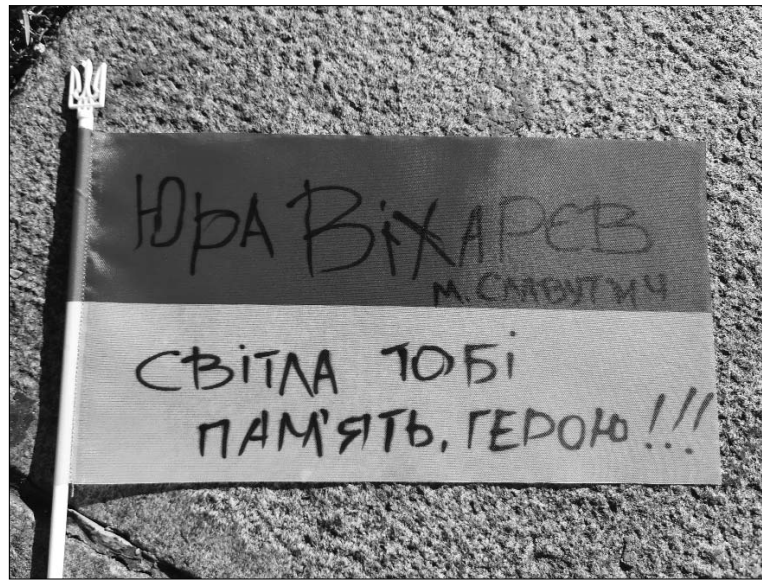 Юра Віхарєв
м. Славутич
Світла тобі
пам'ять, герою!!!